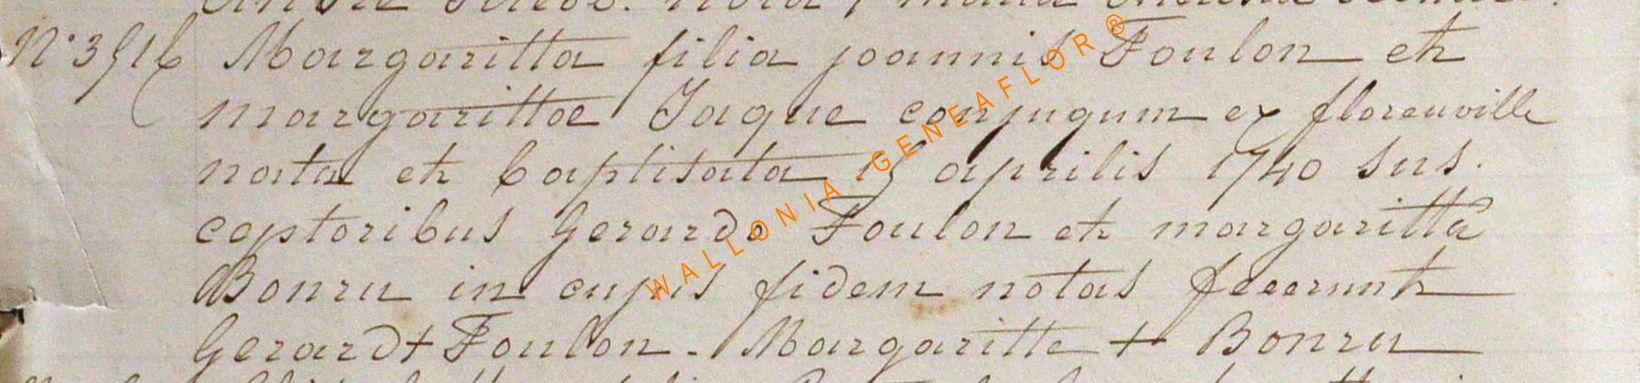 N° 3516 Margaritta filia joannis Foulon et
margarittae Jaque conjugum ex florenville
nata et baptisata 15 aprilis 1740 sus.
ceptoribus Gerardo Foulon et margaritta
Bonru in cujus fidem notas fecerunt
Gerard + Foulon - Margaritte + Bonru
WALLONIA GENEAFLOR ®